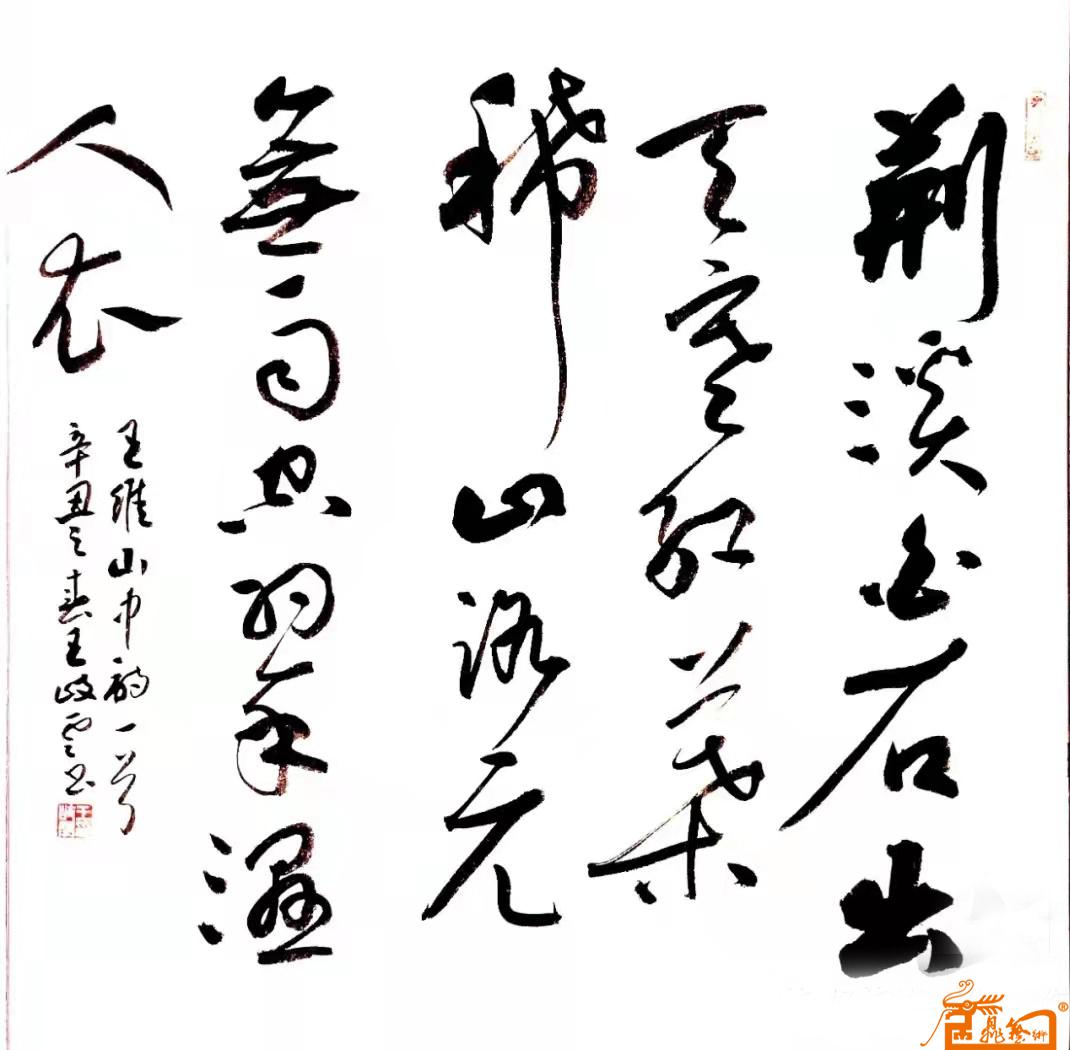 荆溪白石出
天寒红葉
稀山路元
無雨空翠濕
人衣
王維山中詩一首
辛丑之春王岐雲书